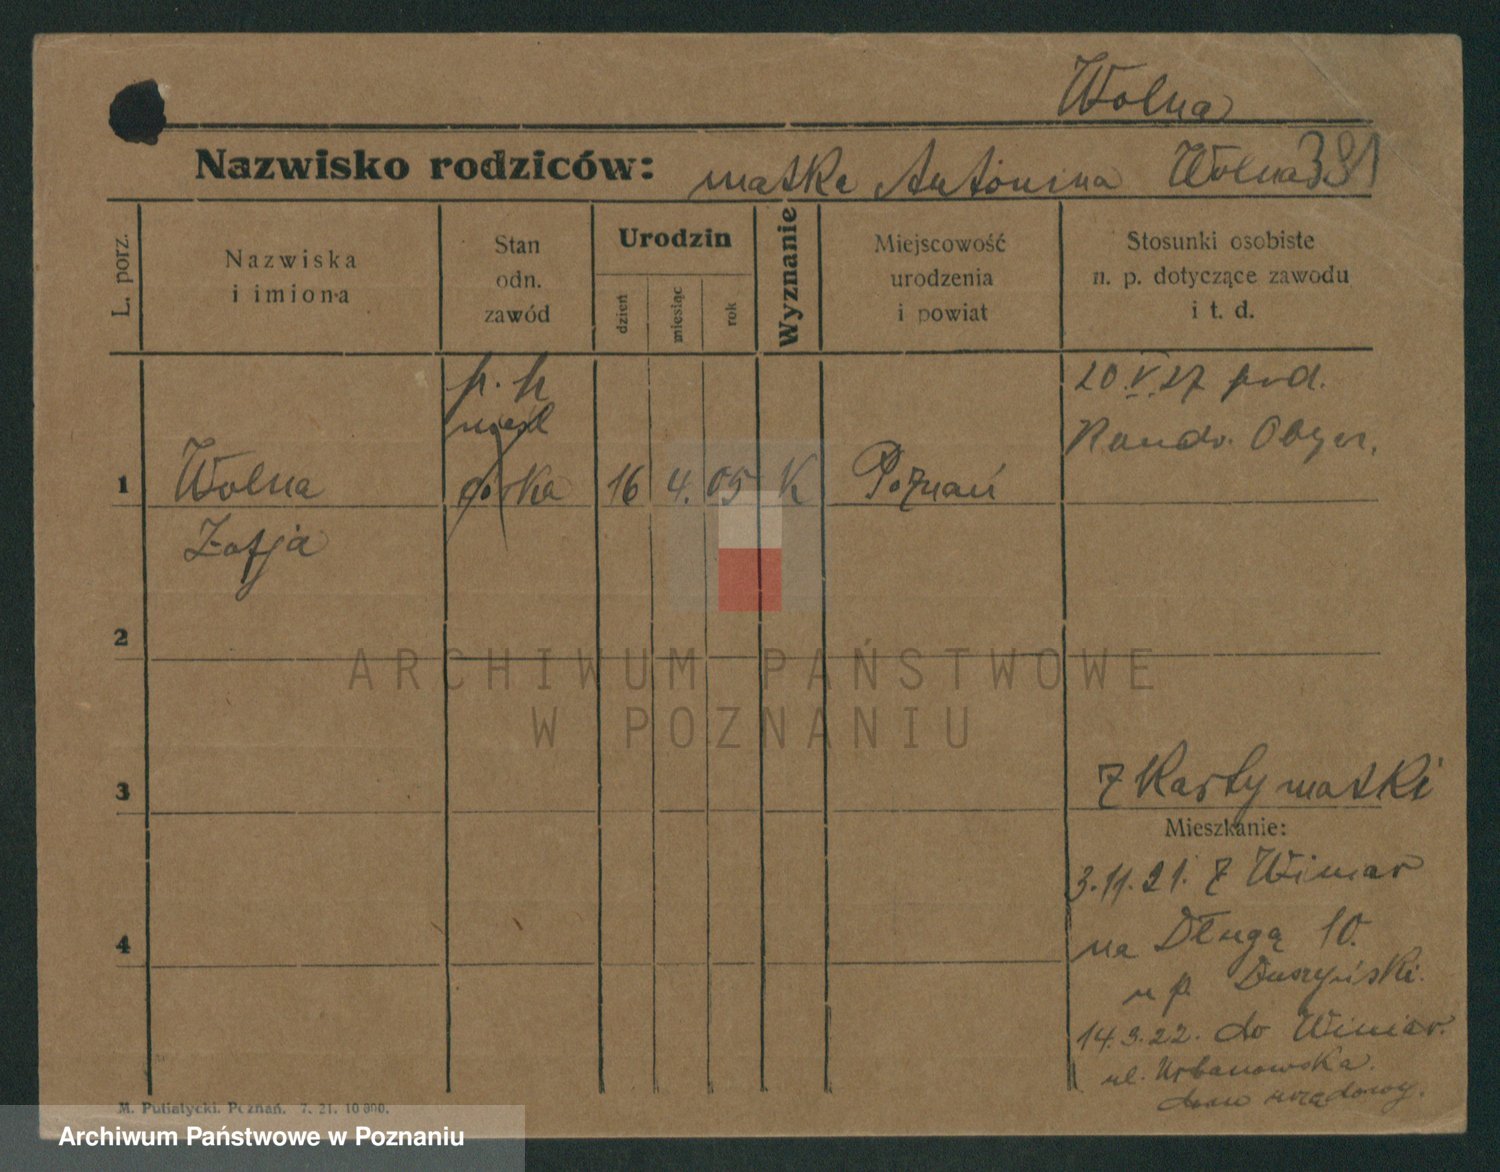 Wolna
Nazwisko rodziców: matka Antonina Wolna 391
L. porz.
Nazwiska
i imiona
Stan
odn.
zawód
Urodzin
dzień
miesiąc
rok
Wyznanie
Miejscowość
urodzenia
i powiat
Stosunki osobiste
n. p. dotyczące zawodu
i t. d.
20.V.27
1 Wolna córka 16 4. 05 K Poznań
Zofja
2
ARCHIWUM PAŃSTWOWE
W POZNANIU
3
z Karty matki
Mieszkanie:
3.11.21. z Winiar
na Długą 10.
4
u p. Duszyński.
14.3.22. do Winiar.
ul. Urbanowska.
dom urzędowy.
M. Putiatycki. Poznań. 7. 21. 10 000.
Archiwum Państwowe w Poznaniu